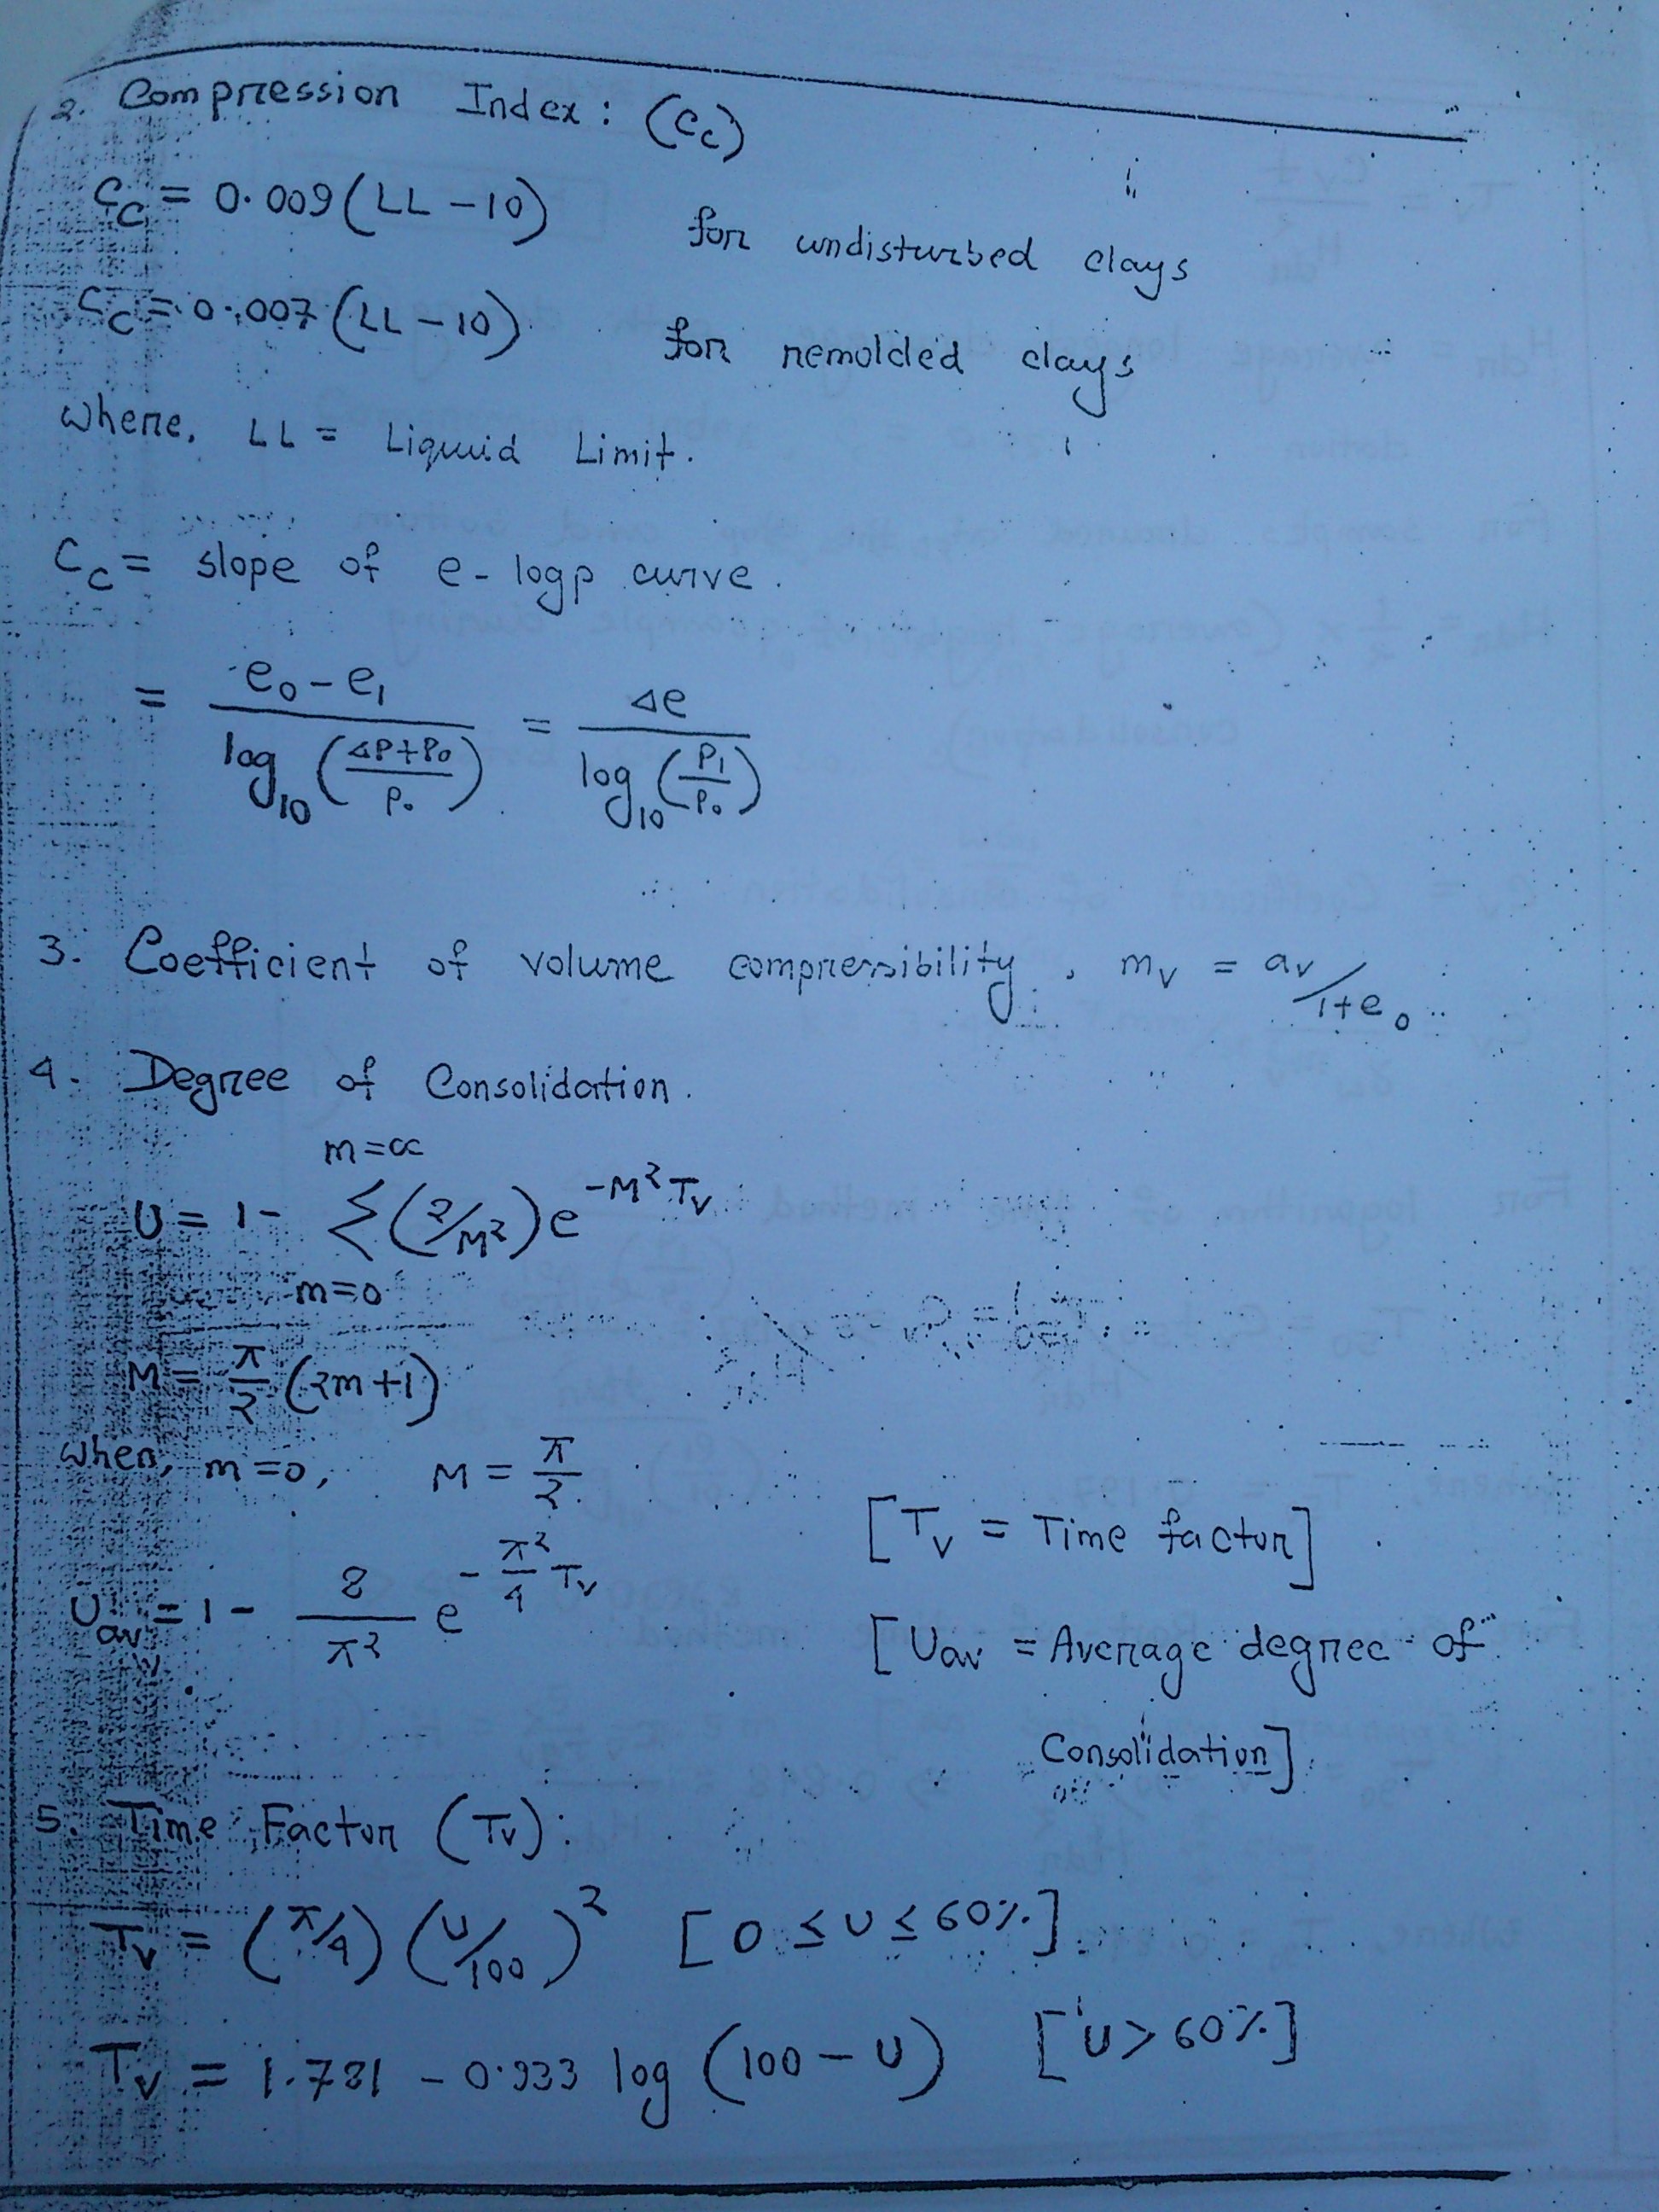 2. Compression Index: (Cc)
Cc = 0.009 (LL - 10) for undisturbed clays
Cc = 0.007 (LL - 10) for remolded clays
Where, LL = Liquid Limit.
Cc = slope of e - logp curve.
= e₀ - e₁ / log₁₀ (ΔP+P₀ / P₀) = Δe / log₁₀ (P₁ / P₀)
3. Coefficient of volume compressibility, mv = av / 1+e₀
4. Degree of Consolidation.
m=∝
U = 1 - Σ (2/M²) e^-M² Tv
m=0
M = π/2 (2m+1)
when, m=0, M = π/2
[Tv = Time factor]
Uav = 1 - 8/π² e^-π²/4 Tv
[Uav = Average degree of
Consolidation]
5. Time Factor (Tv):
Tv = (π/4) (U/100)² [0 ≤ U ≤ 60%]
Tv = 1.781 - 0.933 log (100 - U) [U > 60%]